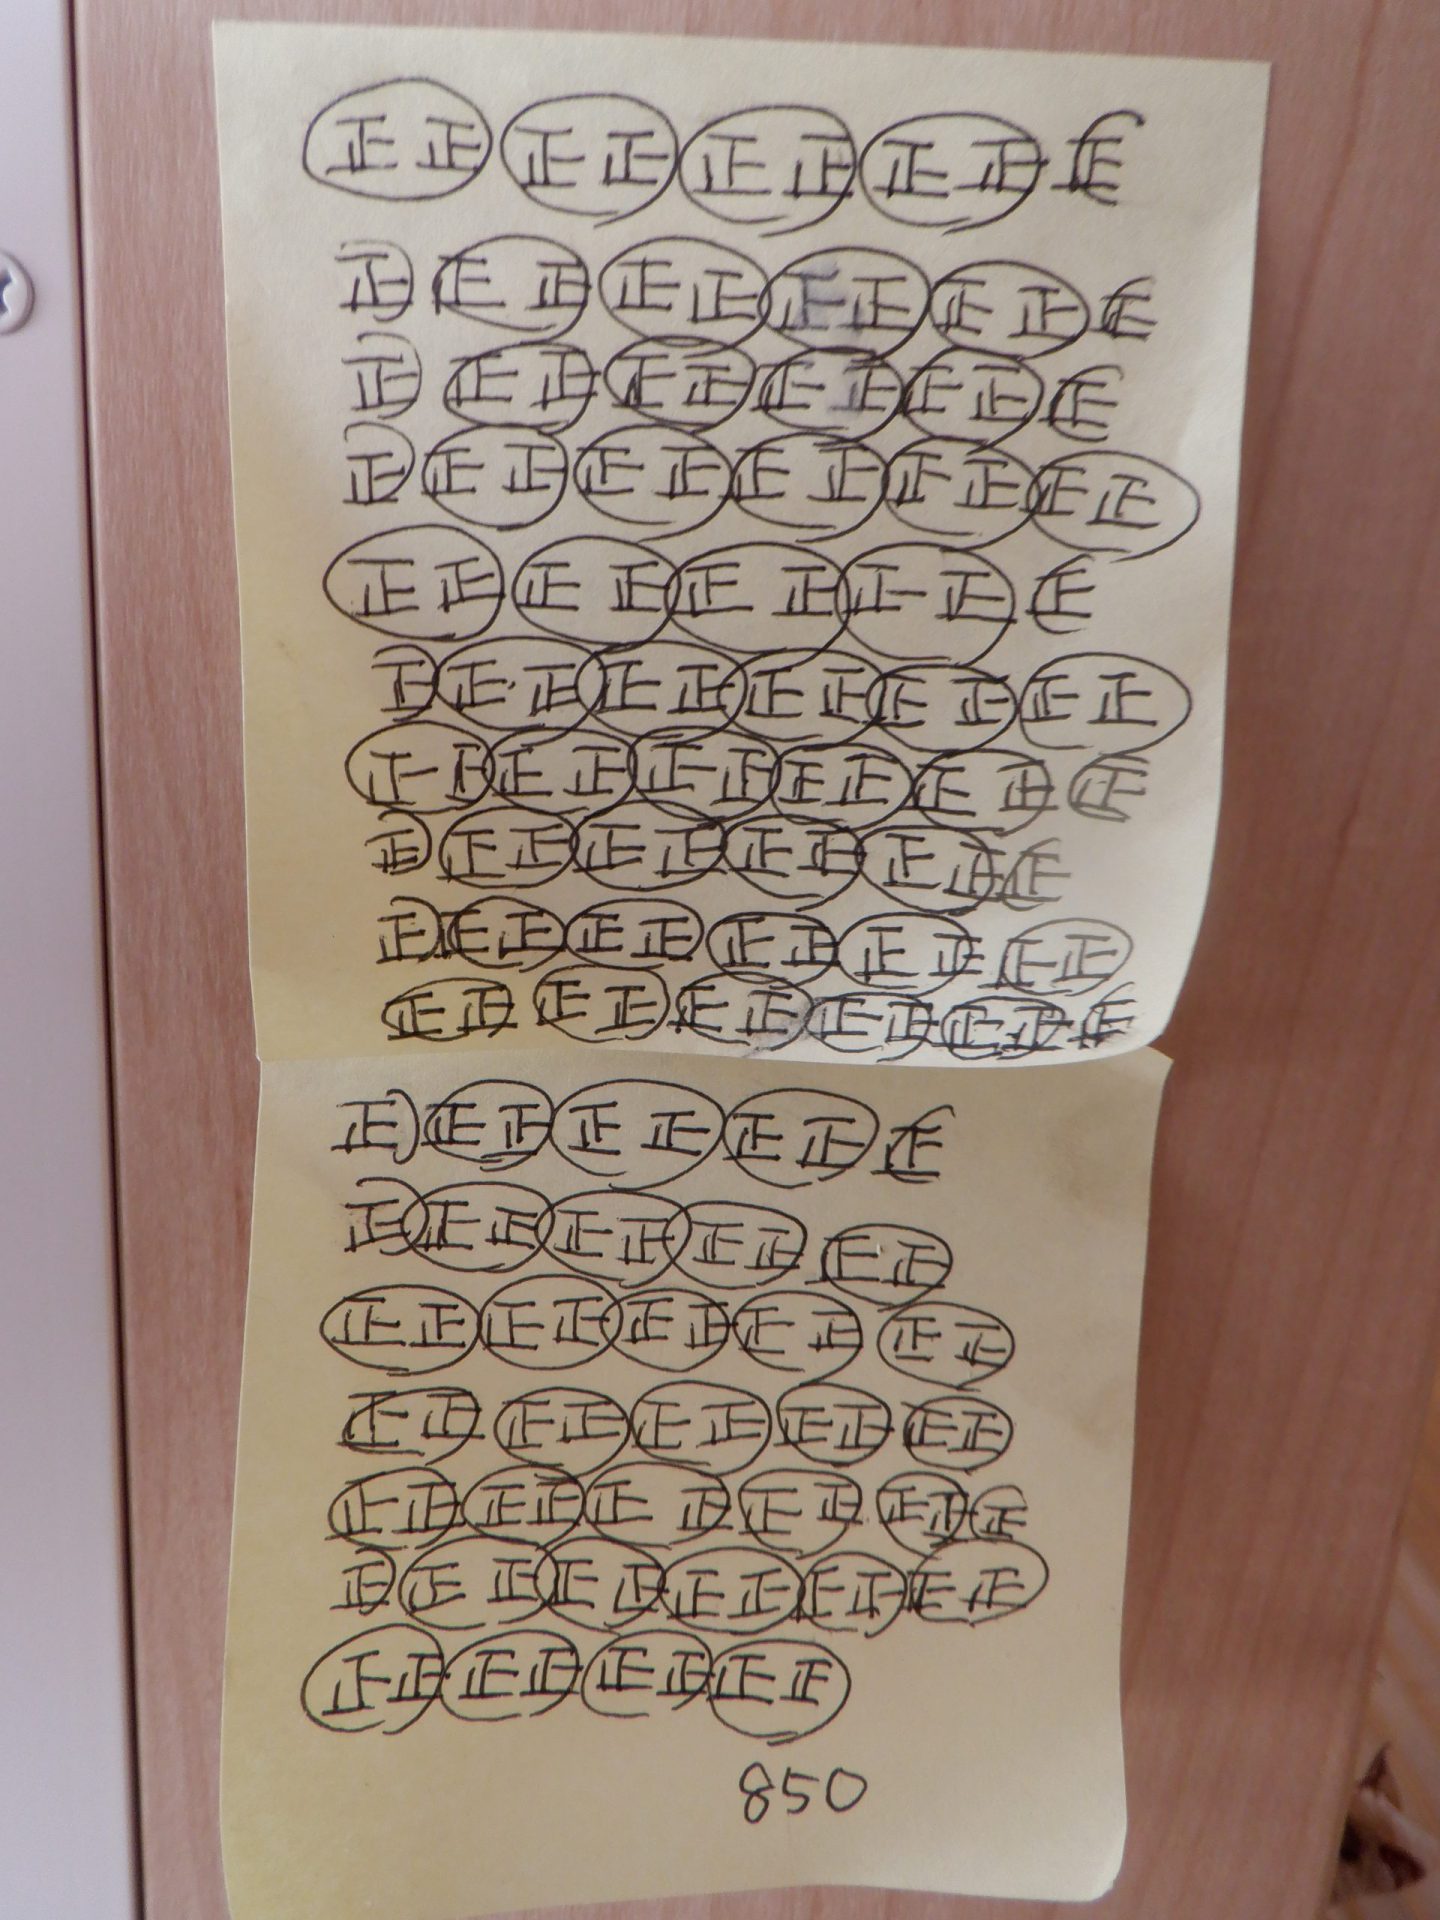 正正正正正正正正正
正正正正正正正正正正
正正正正正正正正正正
正正正正正正正正正正正
正正正正正正正正正
正正正正正正正正正正正
正正正正正正正正正正正
正正正正正正正正正正
正正正正正正正正正正正
正正正正正正正正正正正
正正正正正正正正
正正正正正正正正正
正正正正正正正正正正
正正正正正正正正正正
正正正正正正正正正正正
正正正正正正正正正正正
正正正正正正正正
850